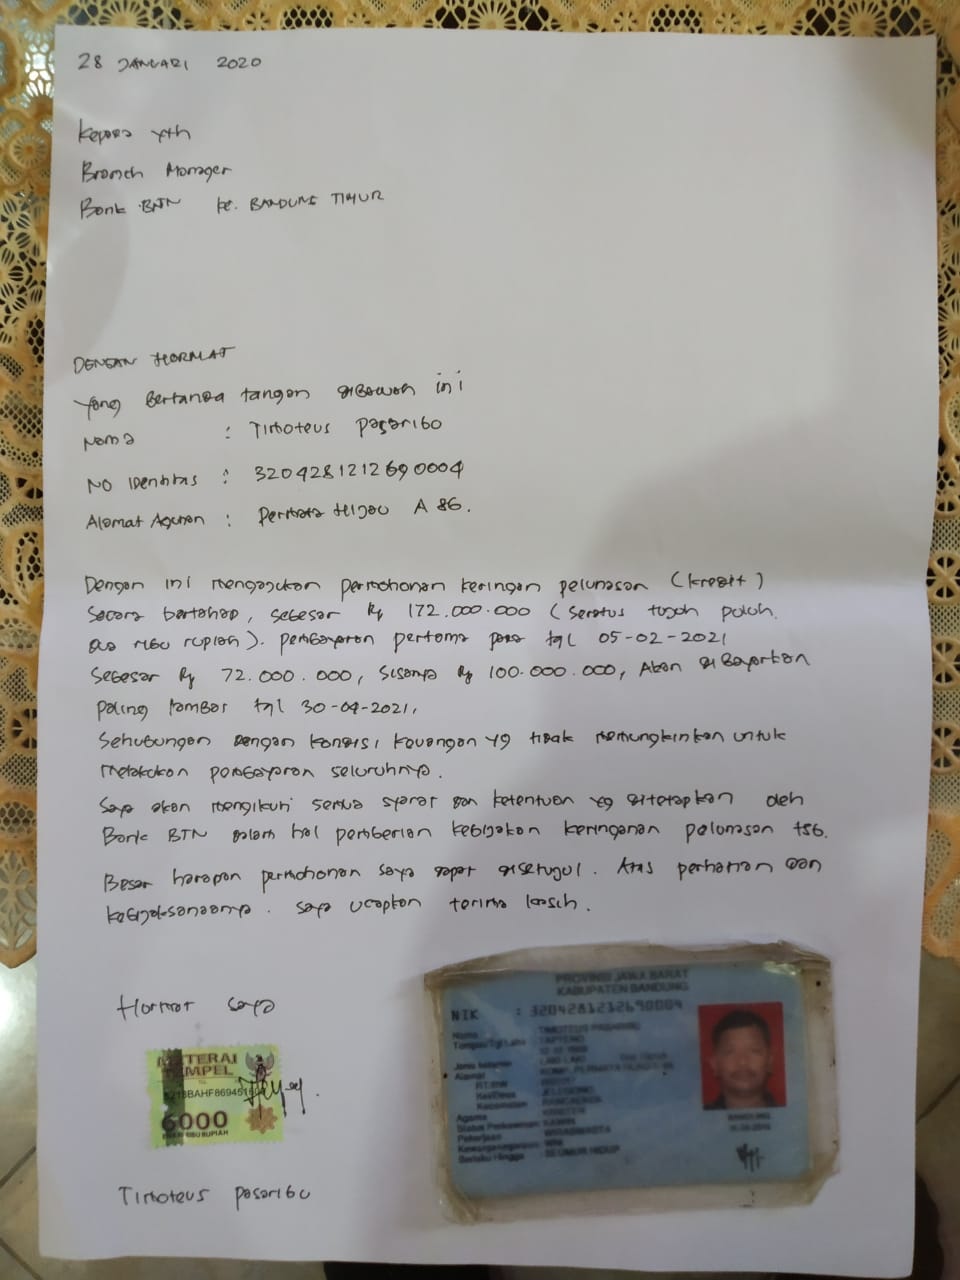 28 JANUARI 2020
Kepada yth
Branch Manager
Bank BTN kc. BANDUNG TIMUR
DENGAN HORMAT
Yang Bertanda tangan diBawah ini
Nama : Timoteus Pasaribo
NO Identitas : 3204281212690004
Alamat Agunan : Permata Hijau A 86.
Dengan ini mengajukan permohonan keringan pelunasan (kredit)
Secara bertahap, sebesar Rp 172.000.000 (Seratus tujuh puluh
dua ribu rupiah). pembayaran pertama pada tgl 05-02-2021
Sebesar Rp 72.000.000, Sisanya Rp 100.000.000, Akan diBayarkan
paling lambat tgl 30-04-2021,
Sehubungan Dengan kondisi keuangan yg tidak memungkinkan untuk
melakukan pembayaran seluruhnya.
Saya akan mengikuti semua syarat dan ketentuan yg ditetapkan oleh
Bank BTN dalam hal pemberian kebijakan keringanan pelunasan tsb.
Besar harapan permohonan saya dapat disetujui. Atas perhatian dan
kebijaksanaannya. saya ucapkan terima kasih.
Hormat saya
METERAI
TEMPEL
6000
ENAM RIBU RUPIAH
Timoteus pasaribu
PROVINSI JAWA BARAT
KABUPATEN BANDUNG
NIK : 3204281212690004
Nama : TIMOTEUS PASARIBU
Jenis kelamin : LAKI-LAKI
Alamat
RT/RW
Kel/Desa : JELEGONG
Kecamatan : RANCAEKEK
Agama : KRISTEN
Status Perkawinan : KAWIN
Pekerjaan : WIRASWASTA
Kewarganegaraan : WNI
Berlaku Hingga : SEUMUR HIDUP
BANDUNG